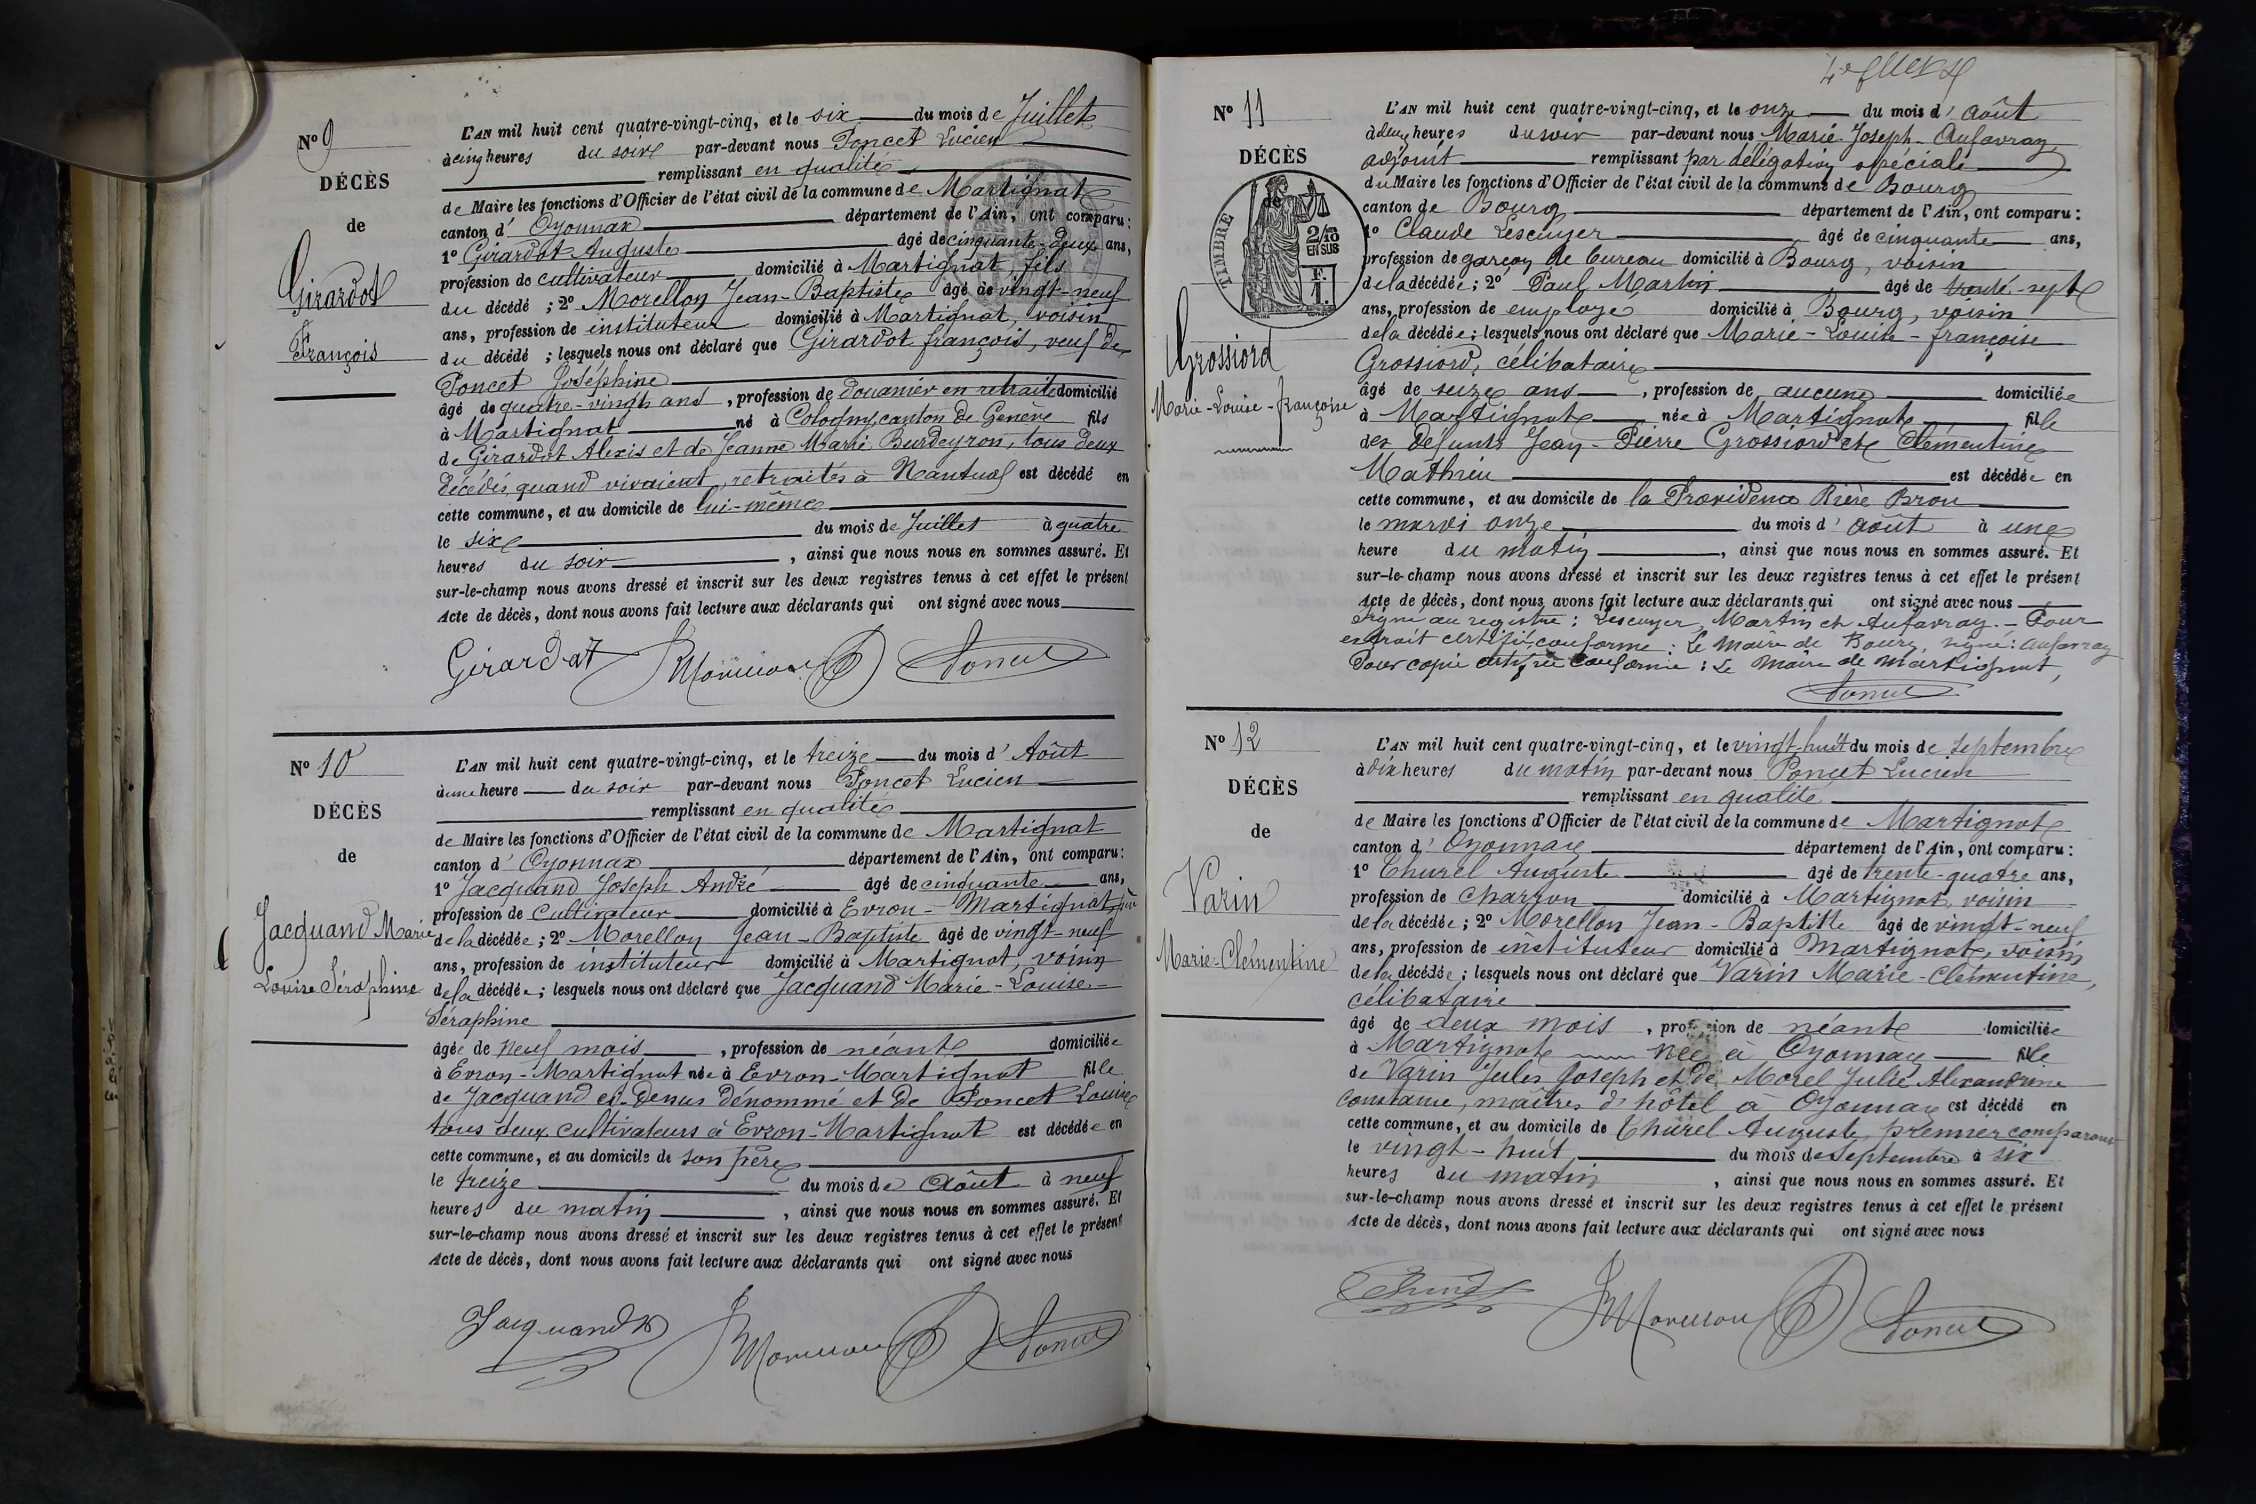 Nº 9
DÉCÈS
de
Girardot
François
L'AN mil huit cent quatre-vingt-cinq, et le six du mois de Juillet
à cinq heures du soir par-devant nous Poncet Lucien
remplissant en qualité
de Maire les fonctions d'Officier de l'état civil de la commune de Martignat
canton d' Oyonnax département de l'Ain, ont comparu:
1º Girardot Auguste âgé de cinquante-deux ans,
profession de cultivateur domicilié à Martignat, fils
du décédé ; 2º Morellon Jean-Baptiste âgé de vingt-neuf
ans, profession de instituteur domicilié à Martignat, voisin
du décédé ; lesquels nous ont déclaré que Girardot françois, veuf de
Poncet Joséphine
âgé de quatre-vingts ans, profession de douanier en retraite domicilié
à Martignat né à Cologny, canton de Genève fils
de Girardot Alexis et de Jeanne Marie Burdeyron, tous deux
décédés, quand vivaient, retraités à Nantua est décédé en
cette commune, et au domicile de lui-même
le six du mois de Juillet à quatre
heures du soir, ainsi que nous nous en sommes assuré. Et
sur-le-champ nous avons dressé et inscrit sur les deux registres tenus à cet effet le présent
Acte de décès, dont nous avons fait lecture aux déclarants qui ont signé avec nous
Girardot Morellon Poncet
Nº 10
DÉCÈS
de
Jacquand Marie
Louise Séraphine
L'AN mil huit cent quatre-vingt-cinq, et le treize du mois d' Août
à une heure du soir par-devant nous Poncet Lucien
remplissant en qualité
de Maire les fonctions d'Officier de l'état civil de la commune de Martignat
canton d' Oyonnax département de l'Ain, ont comparu:
1º Jacquand Joseph André âgé de cinquante ans,
profession de Cultivateur domicilié à Evron-Martignat, père
de la décédée ; 2º Morellon Jean-Baptiste âgé de vingt-neuf
ans, profession de instituteur domicilié à Martignat, voisin
de la décédée ; lesquels nous ont déclaré que Jacquand Marie-Louise-
Séraphine
âgée de Neuf mois, profession de néant domiciliée
à Evron-Martignat née à Evron-Martignat fille
de Jacquand ci-Denus dénommé et de Poncet Louise
tous deux cultivateurs à Evron-Martignat est décédée en
cette commune, et au domicile de son père
le treize du mois de Août à neuf
heures du matin, ainsi que nous nous en sommes assuré. Et
sur-le-champ nous avons dressé et inscrit sur les deux registres tenus à cet effet le présent
Acte de décès, dont nous avons fait lecture aux déclarants qui ont signé avec nous
Jacquand Morellon Poncet
Nº 11
DÉCÈS
TIMBRE
2/10
EN SUS
Grossiord
Marie-Louise-françoise
L'AN mil huit cent quatre-vingt-cinq, et le onze du mois d' août
à deux heures du soir par-devant nous Marie Joseph Aufavray
adjoint remplissant par délégation spéciale
du Maire les fonctions d'Officier de l'état civil de la commune de Bourg
canton de Bourg département de l'Ain, ont comparu:
1º Claude Lescuyer âgé de cinquante ans,
profession de garçon de bureau domicilié à Bourg, voisin
de la décédée ; 2º Paul Martin âgé de trente-sept
ans, profession de employé domicilié à Bourg, voisin
de la décédée ; lesquels nous ont déclaré que Marie-Louise-françoise
Grossiord, célibataire
âgé de seize ans, profession de aucune domiciliée
à Martignat née à Martignat fille
des défunts Jean-Pierre Grossiord et Clémentine
Mathieu est décédée en
cette commune, et au domicile de la Providence Rière Brou
le mardi onze du mois d' août à une
heure du matin, ainsi que nous nous en sommes assuré. Et
sur-le-champ nous avons dressé et inscrit sur les deux registres tenus à cet effet le présent
Acte de décès, dont nous avons fait lecture aux déclarants qui ont signé avec nous
Signé au registre : Lescuyer, Martin et Aufavray. - Pour
extrait certifié conforme : Le Maire de Bourg, signé : Aufavray
Pour copie certifiée conforme : Le Maire de Martignat,
Poncet
Nº 12
DÉCÈS
de
Varin
Marie-Clémentine
L'AN mil huit cent quatre-vingt-cinq, et le vingt-huit du mois de septembre
à dix heures du matin par-devant nous Poncet Lucien
remplissant en qualité
de Maire les fonctions d'Officier de l'état civil de la commune de Martignat
canton d' Oyonnax département de l'Ain, ont comparu:
1º Churel Auguste âgé de trente-quatre ans,
profession de charron domicilié à Martignat, voisin
de la décédée ; 2º Morellon Jean-Baptiste âgé de vingt-neuf
ans, profession de instituteur domicilié à Martignat, voisin
de la décédée ; lesquels nous ont déclaré que Varin Marie-Clémentine,
célibataire
âgé de deux mois, profession de néant domiciliée
à Martignat née à Oyonnax fille
de Varin Jules Joseph et de Morel Julie Alexandrine
Constance, maîtres d'hôtel à Oyonnax est décédé en
cette commune, et au domicile de Churel Auguste, premier comparant
le vingt-huit du mois de septembre à six
heures du matin, ainsi que nous nous en sommes assuré. Et
sur-le-champ nous avons dressé et inscrit sur les deux registres tenus à cet effet le présent
Acte de décès, dont nous avons fait lecture aux déclarants qui ont signé avec nous
Churel Morellon Poncet